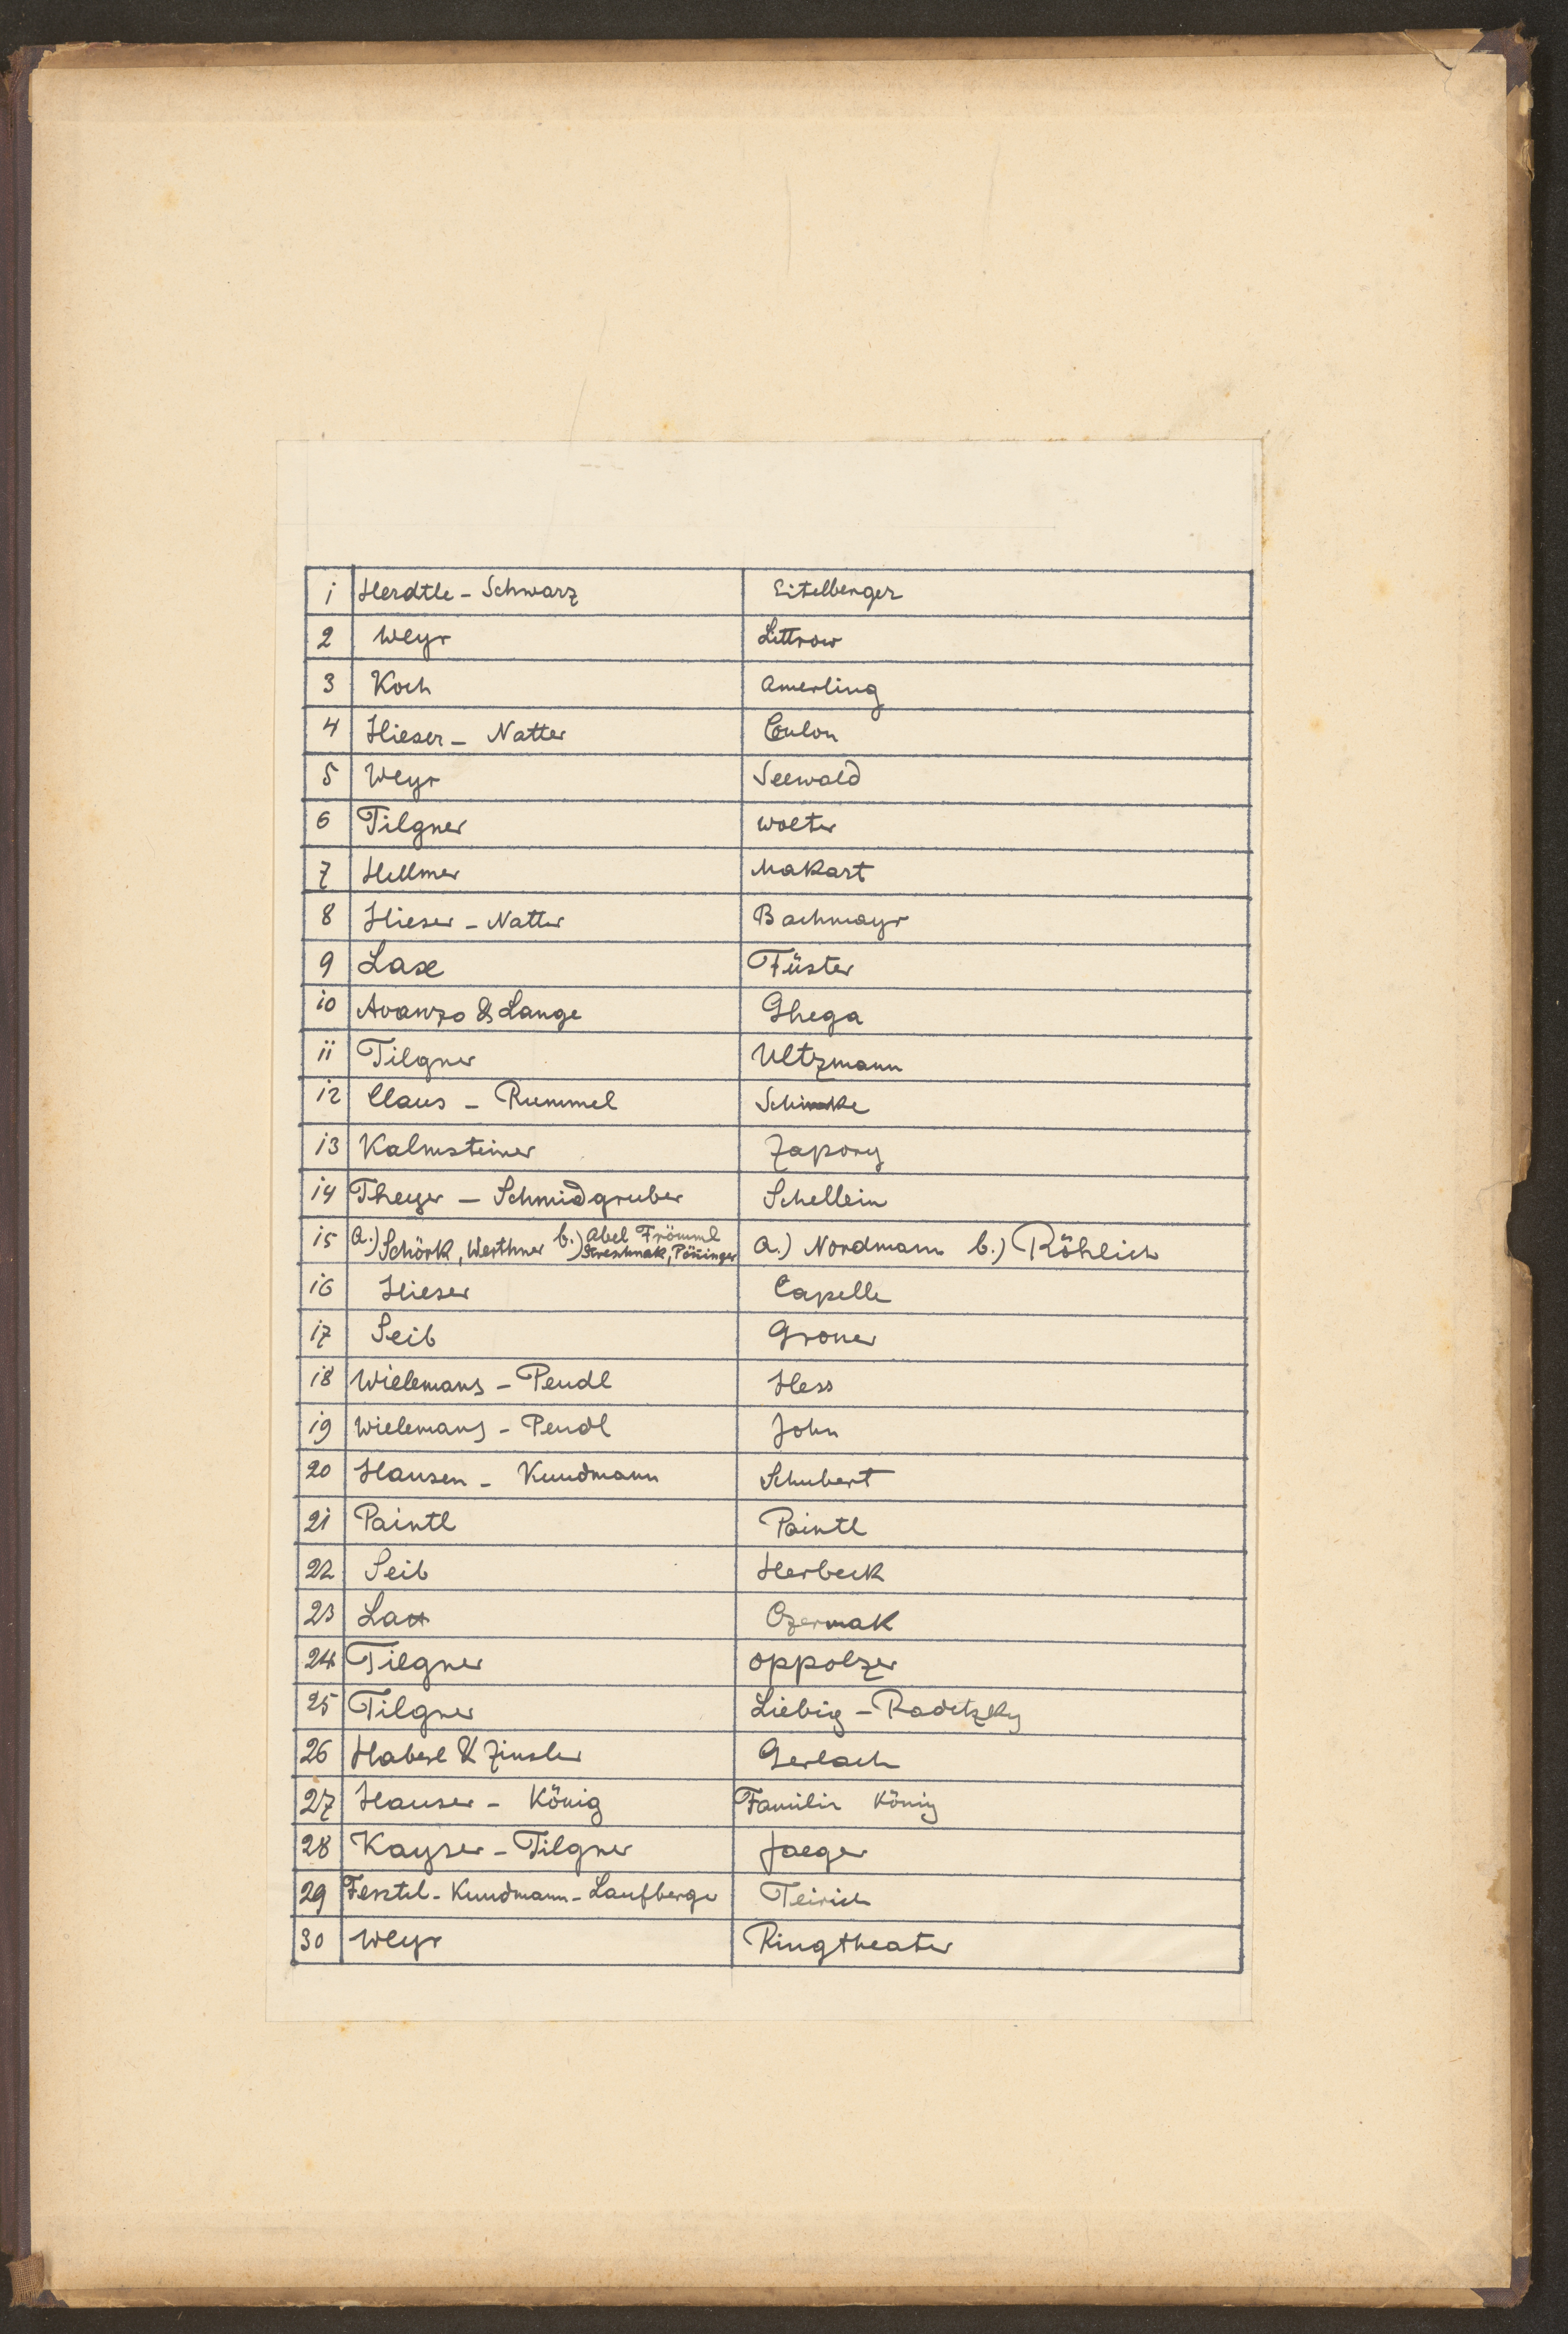 1 Herdtle - Schwarz Eitelberger
2 Weyr Littrow
3 Koch Amerling
4 Hieser - Natter Coulon
5 Weyr Seewald
6 Tilgner Wolter
7 Hellmer Makart
8 Hieser - Natter Bachmayr
9 Lax Füster
10 Avanzo & Lange Ghega
11 Tilgner Ultzmann
12 Claus - Rummel
13 Kalmsteiner Zapory
14 Theyer - Schmidgruber Schellein
15 a.) Schörk, Werthner b.) Abel Frömml Streschnak, Pöninger a.) Nordmann b.) Röhlich
16 Hieser Capelle
17 Seib Groner
18 Wielemans - Pendl Hess
19 Wielemans - Pendl John
20 Hansen - Kundmann Schubert
21 Paintl Paintl
22 Seib Herbeck
23 Lax Czermak
24 Tilgner Oppolzer
25 Tilgner Liebig - Radetzky
26 Haberl & Zinsler Gerlach
27 Hauser - König Familie König
28 Kayser - Tilgner Jaeger
29 Ferstel - Kundmann - Laufberger Teirich
30 Weyr Ringtheater